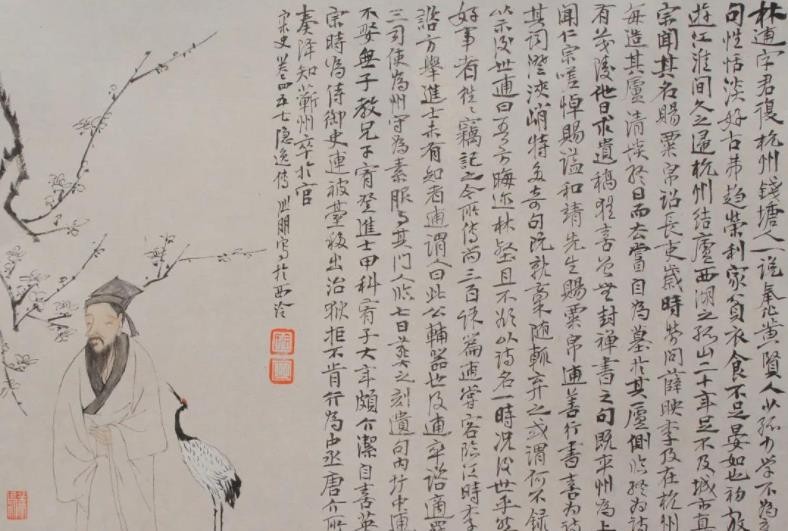 林逋字君復杭州錢塘人一說奉化黃賢人少孤力學不為
句性恬淡好古弗趨榮利家貧衣食不足晏如也初放
遊江淮間久之還杭州結廬西湖之孤山二十年足不及城市真
宗聞其名賜粟帛詔長吏歲時勞問薛映李及在杭州
每造其廬清談終日而去嘗自為墓於其廬側臨終為詩
有茂陵他日求遺稿猶喜曾無封禪書之句既卒州為上
聞仁宗嗟悼賜諡和靖先生賜粟帛逋善行書喜為詩
其詞澄浹峭特多奇句既就稾隨輒弃之或謂何不錄
以示後世逋曰吾方晦迹林壑且不欲以詩名一時況後世乎然
好事者往往竊記之今所傳尚三百餘篇逋嘗客臨江時李
諮方舉進士未有知者逋謂人曰此公輔器也及逋卒諮適罷
三司使為州守為素服與其門人臨七日葬之刻遺句內壙中逋
不娶無子教兄子宥登進士甲科宥子大年頗介潔自喜英
宗時為侍御史連被臺移出治獄拒不肯行為中丞唐介所
奏降知蘄州卒於官
宋史卷四五七隱逸傳 寫於西泠